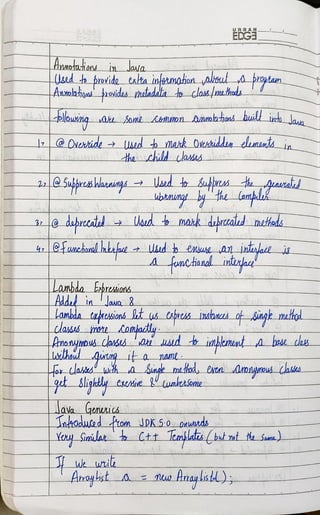 URBAN
EDGE
Annotations in Java
Used to provide extra information about a program
Annotations provides metadata to class/methods
following are some common annotations built into Java
1. @ Override → Used to mark Overridden elements in
the child classes
2. @ SuppressWarnings → Used to suppress the generated
warnings by the compiler
3. @ deprecated → Used to mark deprecated methods
4. @ Functional Interface → Used to ensure an interface is
a functional interface
Lambda Expressions
Added in Java 8
Lambda expressions let us express instances of single method
classes more compactly.
Anonymous classes are used to implement a base class
without giving it a name.
for classes with a single method, even anonymous classes
get slightly excessive & cumbersome
Java Generics
Introduced from JDK 5.0 onwards
Very similar to C++ Templates (but not the same)
If we write
Arraylist a = new Arraylist();